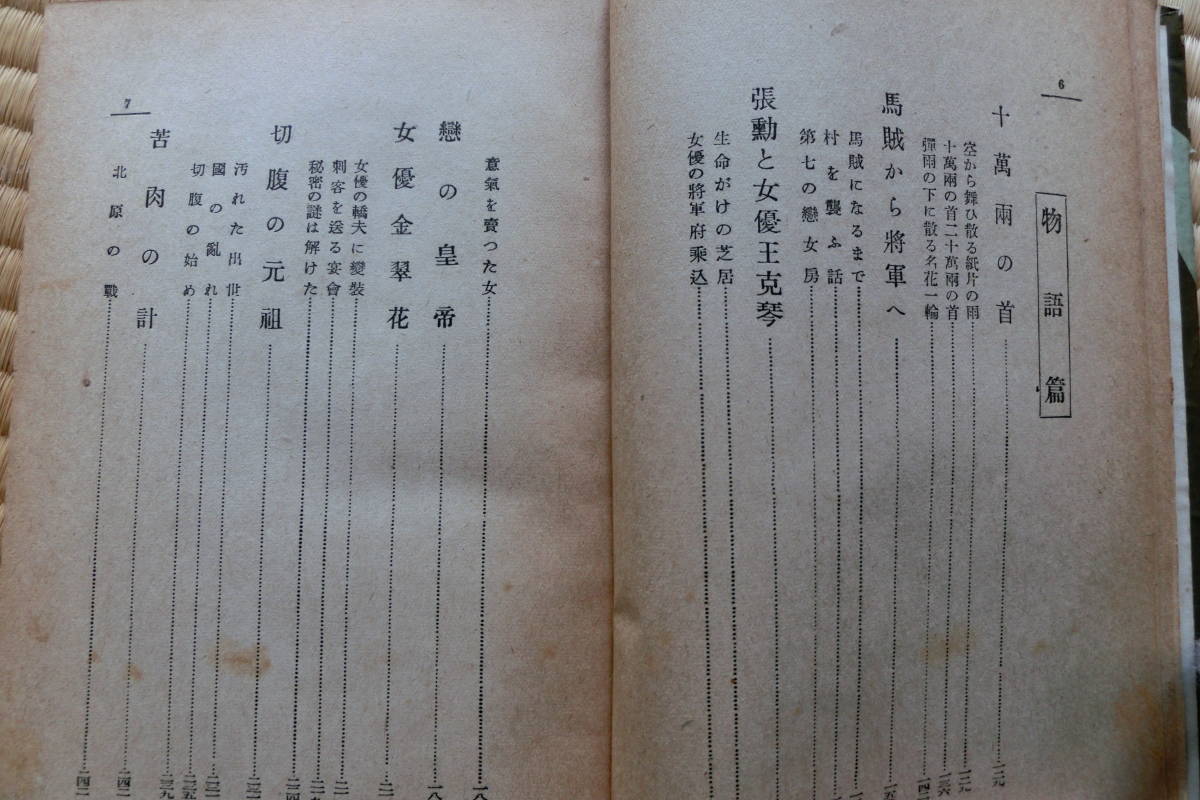 6
物語篇
十萬兩の首
空から舞ひ散る紙片の雨
十萬兩の首二十萬兩の首
彈雨の下に散る名花一輪
馬賊から將軍へ
馬賊になるまで
村を襲ふ話
第七の戀女房
張勳と女優王克琴
生命がけの芝居
女優の將軍府乘込
7
意氣を賣つた女
戀の皇帝
女優金翠花
女優の轎夫に變裝
刺客を送る宴會
秘密の謎は解けた
切腹の元祖
汚れた出世
國の亂れ
切腹の始め
苦肉の計
北原の戰